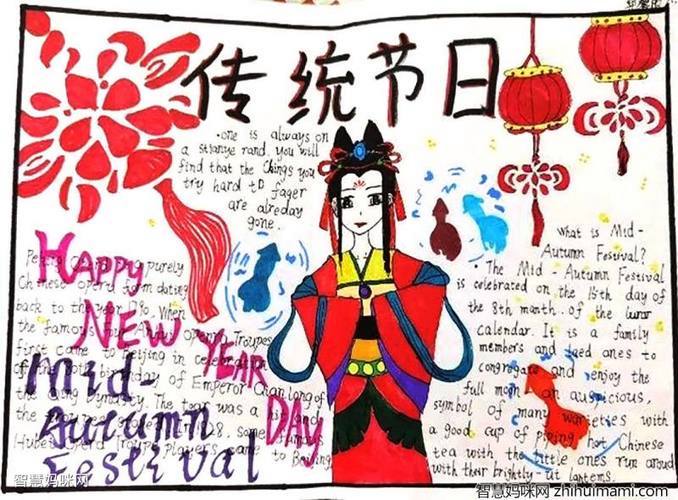 传统节日
·one is always on
a stianye rand. you will
find that the Chings you
try hard to fager
are alreday
gone.
What is Mid-
Autumn Festival?
· The Mid - Autumn Festival
is celebrated on the 15th day of
the 8th month. of the lunar
calendar. It is a family
members and ued ones to
congregate and enjoy the
full moon an auspicious,
symbol of many warieties with
a good cup of piping hot Chinese
tea with the little ones run aroud
with their brightly - lit lanterns.
HAPPY
NEW YEAR
DAY
Mid-
Autumn
Festival
purely
Chinese opera form dating
back to the year 1790. When
the famous Opera Troupes
first came to Beijing in celebration
of the birthday of Emperor Qianlong of
the Qing Dynasty. The tour was a
Hubei Opera Troupe players came to Beijing
智慧妈咪网
智慧妈咪网 zhihuimami.com